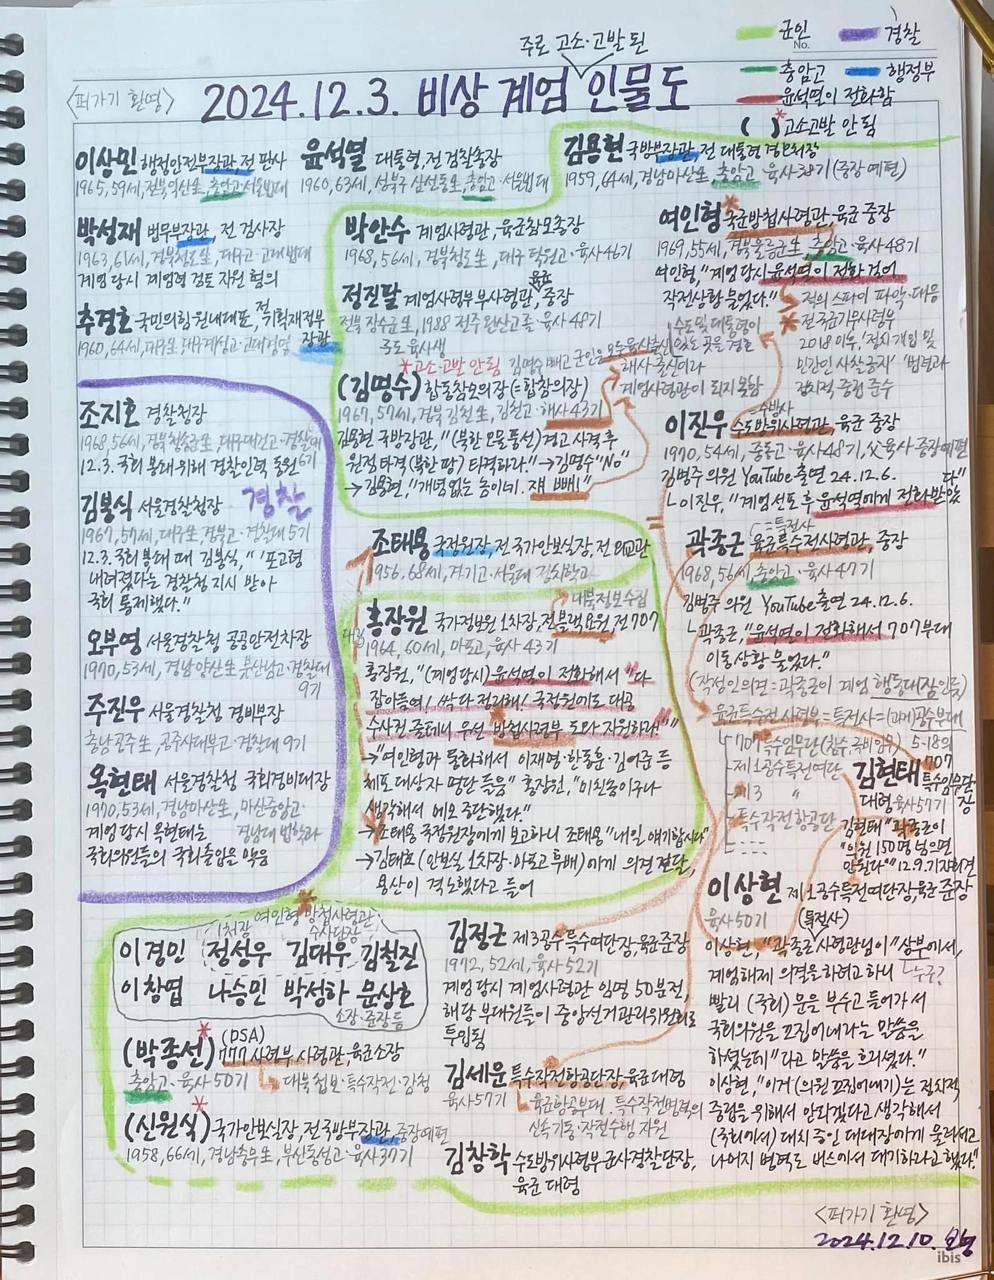 주로 고소·고발된
군인
경찰
No.
충암고
행정부
윤석열이 전화함
( )* 고소고발 안 됨
<퍼가기 환영>
2024.12.3. 비상 계엄 인물도
이상민 행정안전부장관, 전 판사
1965, 59세, 전북익산生, 충암고·서울법대
박성재 법무부장관, 전 검사장
1963, 61세, 경북청도生, 대구고·고대법대
계엄 당시 계엄령 검토 자원 혐의
추경호 국민의힘 원내대표, 전 기획재정부
장관
1960, 64세, 대구生, 대구계성고·고대경영
윤석열 대통령, 전 검찰총장
1960, 63세, 성북구 삼선동生, 충암고·서울법대
김용현 국방부장관, 전 대통령 경호처장
1959, 64세, 경남마산生, 충암고·육사38기 (중장 예편)
박안수 계엄사령관, 육군참모총장
1968, 56세, 경북청도生, 대구 덕원고·육사46기
정진팔 계엄사령부 부사령관, 육군 중장
전북 장수군生, 1988 전주 완산고졸·육사48기
주로 육사생
*고소·고발 안 됨
(김명수) 합동참모의장 (=합참의장)
1967, 57세, 경북 김천生, 김천고·해사43기
김명수 빼고 군인은 모두 육사출신
해사출신이라
계엄사령관이 되지 못함
김용현 국방장관, "(북한 오물풍선) 경고 사격 후
원점 타격(북한 땅) 타격하라." → 김명수 "No"
→ 김용현, "개념 없는 놈이네. 쟤 빼!"
여인형* 국군방첩사령관, 육군 중장
1969, 55세, 경북울릉군生, 충암고·육사48기
여인형, "계엄 당시 윤석열이 전화 걸어
작전상황 물었다."
적의 스파이 파악·대응
* 전 국군기무사령부
2018 이후, '정치개입 및
민간인 사찰 금지' '법령과
정치적 중립 준수
수도 및 대통령이
있는 곳을 경호
=수방사
이진우 수도방위사령관, 육군 중장
1970, 54세, 중동고·육사48기, 父육사·중장예편
김병주 의원 YouTube 출연 24.12.6.
└이진우, "계엄선포 후 윤석열에게 전화받았다"
=특전사
곽종근 육군특수전사령관, 중장
1968, 56세, 충남고·육사47기
김병주 의원 YouTube 출연 24.12.6.
└곽종근, "윤석열이 전화해서 707부대
이동상황 물었다."
(작성인 의견 = 곽종근이 계엄 행동대장인듯)
육군특수전 사령부 = 특전사 = (과거)공수부대
707특수임무단 (참수, 국비임무) 5·18의
707
제1공수특전여단
제3 〃
특수작전항공단
김현태 특수임무단장
대령 육사57기
김현태 "곽종근이
"의원 150명 넘으면
안된다"" 12.9. 기자회견
조지호 경찰청장
1968, 56세, 경북청송군生, 대구대건고·경찰대6기
12.3. 국회 봉쇄 위해 경찰인력 동원
김봉식 서울경찰청장
경찰
1967, 57세, 대구生, 경북고·경찰대 5기
12.3. 국회 봉대 때 김봉식, "'포고령
내려졌다'는 경찰청 지시 받아
국회 통제했다."
오부명 서울경찰청 공공안전차장
1970, 53세, 경남양산生, 부산남고·경찰대
9기
주진우 서울경찰청 경비부장
충남공주生, 공주사대부고·경찰대 9기
목현태 서울경찰청 국회경비대장
1970, 53세, 경남마산生, 마산중앙고
경남대 법학과
계엄 당시 목현태는
국회의원들의 국회출입을 막음
조태용 국정원장, 전 국가안보실장, 전 외교관
1956, 68세, 경기고·서울대 정치학과
대북정보수집
홍장원 국가정보원 1차장, 전 블랙요원, 전 707
1964, 60세, 마포고, 육사 43기
홍장원, "(계엄 당시) 윤석열이 전화해서 "다
잡아들여! 싹다 정리해! 국정원에도 대공
수사권 줄테니 우선 방첩사령부 도와 지원하라""
→"여인형과 통화해서 이재명·한동훈·김어준 등
체포대상자 명단 들음" 홍장원, "미친놈이구나
생각해서 메모 중단했다."
→조태용 국정원장에게 보고하니 조태용 "내일 얘기합시다"
→김태효 (안보실 1차장·마포고 후배)에게 의견 전달,
용산이 격노했다고 들어
여인형 방첩사령관,
1처장
수사단장
이경민 정성우 김대우 김철진
이창엽 나승민 박성하 문상호
소장·준장 등
(박종선)* (DSA) 777 사령부 사령관, 육군소장
충암고·육사 50기
대북첩보·특수작전·감청
(신원식)* 국가안보실장, 전 국방부장관, 중장예편
1958, 66세, 경남통영生, 부산동성고·육사37기
김정근 제3공수특수여단장, 육군준장
1972, 52세, 육사 52기
계엄 당시 계엄사령관 임명 50분전,
해당 부대원들이 중앙선거관리위원회로
투입됨
김세운 특수작전항공단장, 육군 대령
육사57기
육군항공부대, 특수작전병력의
신속기동·작전수행 지원
김창학 수도방위사령부 군사경찰단장,
육군 대령
이상현 제1공수특전여단장, 육군 준장
육사50기
(특전사)
이상현, "곽종근 사령관님이 "상부에서,
└누구?
계엄해제 의결을 하려고 하니
빨리 (국회) 문을 부수고 들어가서
국회의원을 끄집어내라는 말씀을
하셨는데" 다고 말씀을 흐리셨다."
이상현, "이거 (의원 끄집어내기)는 정치적
중립을 위해서 안되겠다고 생각해서
(국회에서) 대치 중인 대대장에게 물러서고
나머지 병력도 버스에서 대기하라고 했다."
<퍼가기 환영>
2024.12.10.
ibis